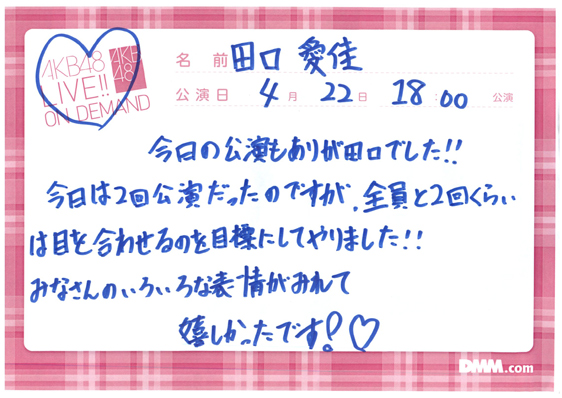 AKB48
LIVE!!
ON DEMAND
AKB
48
名 前 田口 愛佳
公演日 4月 22日 18:00 公演
今日の公演もありが田口でした!!
今日は2回公演だったのですが、全員と2回くらい
は目を合わせるのを目標にしてやりました!!
みなさんのいろいろな表情がみれて
嬉しかったです!♡
DMM.com